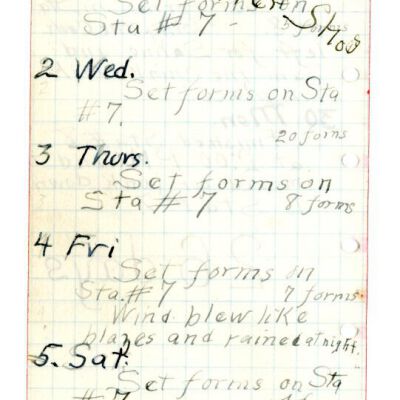 Set forms on
Sta # 7 - 5 forms
2 Wed.
Set forms on Sta
# 7.
20 forms
3 Thurs.
Set forms on
Sta # 7 8 forms
4 Fri
Set forms on
Sta. # 7 7 forms
Wind blew like
blazes and rained at night.
5. Sat.
Set forms on Sta
# 7